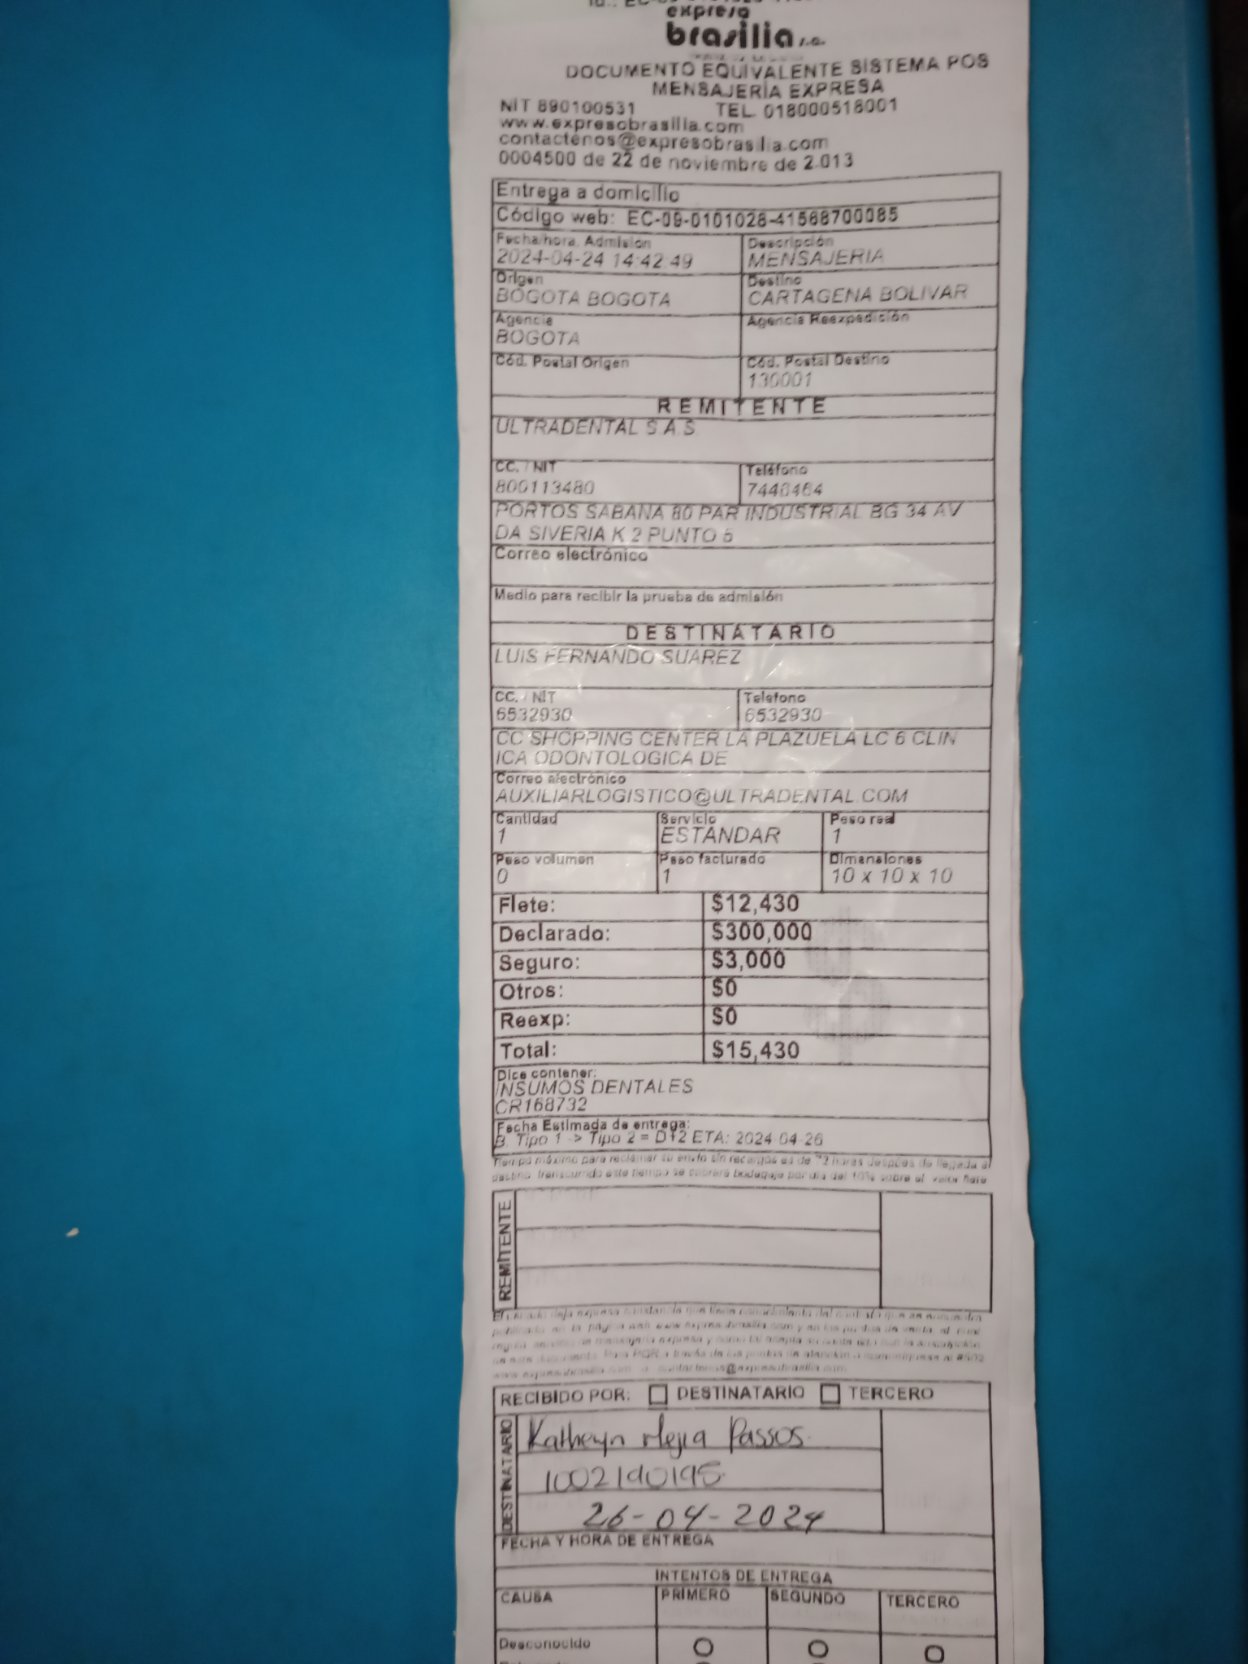 expreso
brasilia s.a.
DOCUMENTO EQUIVALENTE SISTEMA POS
MENSAJERÍA EXPRESA
NIT 890100531 TEL. 018000518001
www.expresobrasilia.com
contactenos@expresobrasilia.com
0004500 de 22 de noviembre de 2.013
Entrega a domicilio
Código web: EC-09-0101028-41568700085
Fecha/hora. Admisión Descripción
2024-04-24 14:42:49 MENSAJERIA
Origen Destino
BOGOTA BOGOTA CARTAGENA BOLIVAR
Agencia Agencia Reexpedición
BOGOTA
Cód. Postal Origen Cód. Postal Destino
130001
REMITENTE
ULTRADENTAL S A S
CC. / NIT Teléfono
800113480 7440464
PORTOS SABANA 80 PAR INDUSTRIAL BG 34 AV
DA SIVERIA K 2 PUNTO 5
Correo electrónico
Medio para recibir la prueba de admisión
DESTINATARIO
LUIS FERNANDO SUAREZ
CC. / NIT Teléfono
6532930 6532930
CC SHOPPING CENTER LA PLAZUELA LC 6 CLIN
ICA ODONTOLOGICA DE
Correo electrónico
AUXILIARLOGISTICO@ULTRADENTAL.COM
Cantidad Servicio Peso real
1 ESTANDAR 1
Peso volumen Peso facturado Dimensiones
0 1 10 x 10 x 10
Flete: $12,430
Declarado: $300,000
Seguro: $3,000
Otros: $0
Reexp: $0
Total: $15,430
Dice contener:
INSUMOS DENTALES
CR168732
Fecha Estimada de entrega:
B. Tipo 1 -> Tipo 2 = D+2 ETA: 2024-04-26
Tiempo máximo para reclamar su envío sin recargos es de 72 horas después de llegada al
destino, transcurrido este tiempo se cobrará bodegaje por día del 10% sobre el valor flete
REMITENTE
RECIBIDO POR: DESTINATARIO TERCERO
DESTINATARIO
Katheryn Mejia Passos
1002190195
26-04-2024
FECHA Y HORA DE ENTREGA
INTENTOS DE ENTREGA
CAUSA PRIMERO SEGUNDO TERCERO
Desconocido